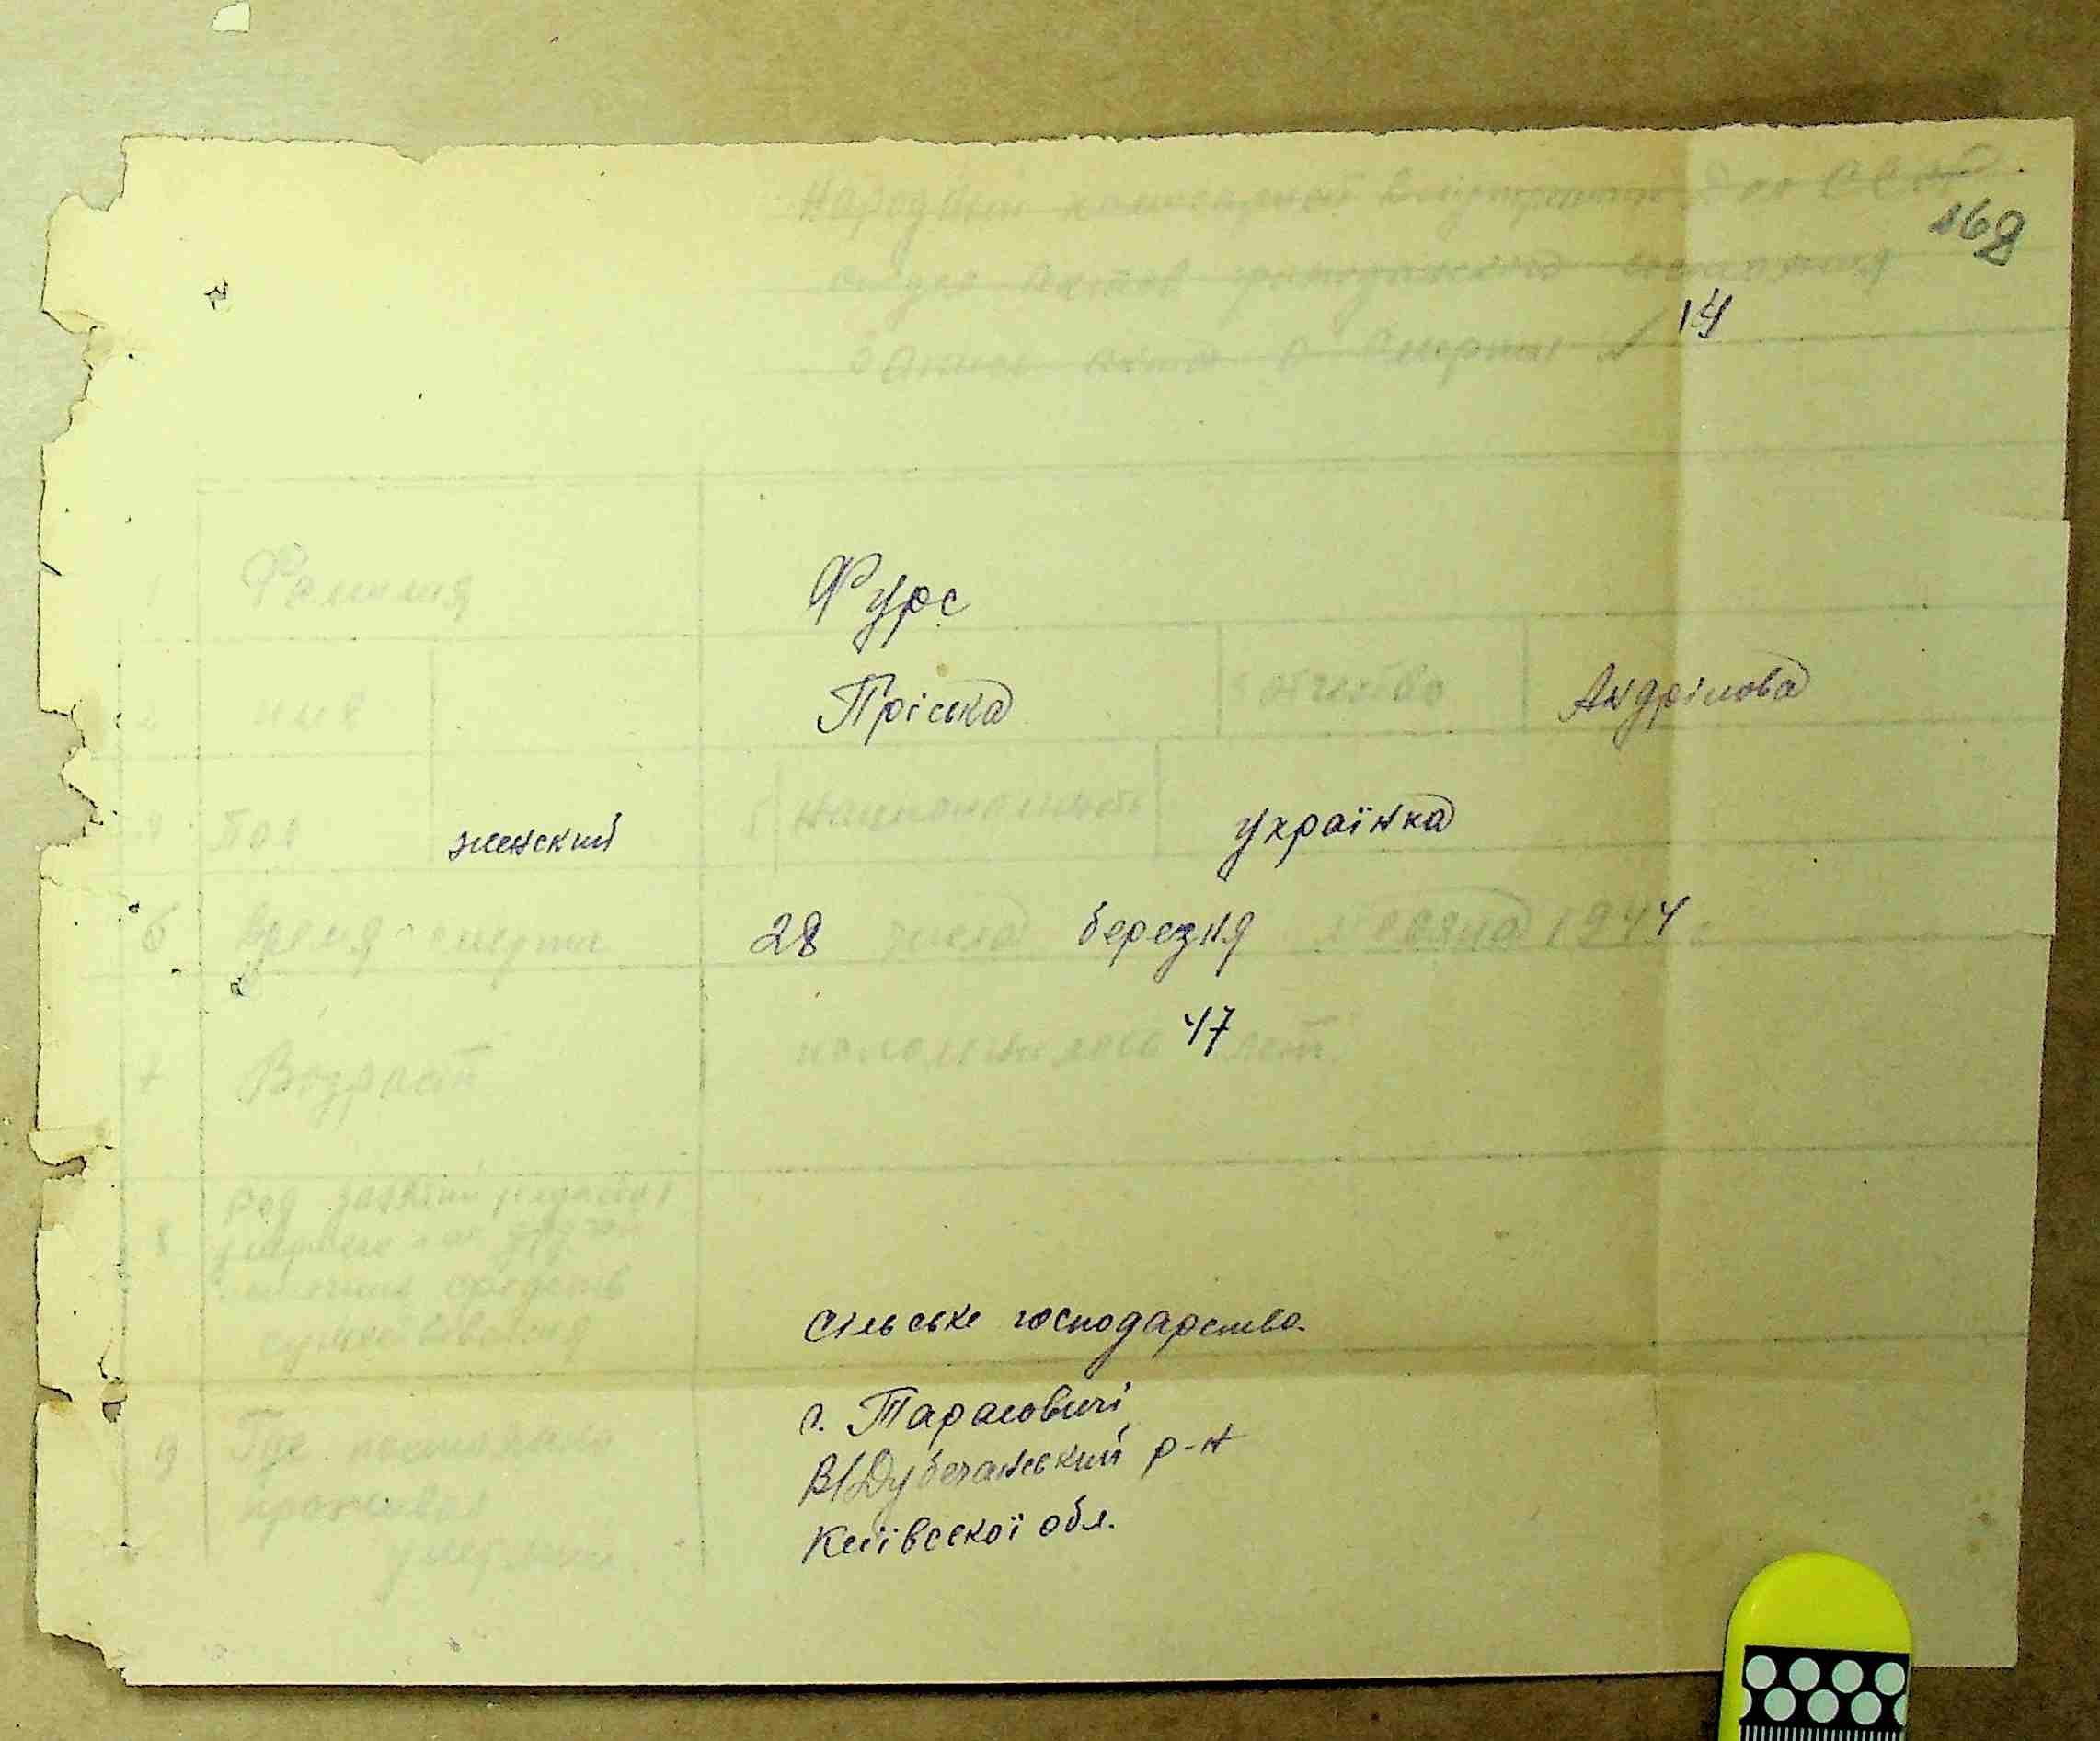 Народный комиссариат Внутренних Дел СССР
168
отдел актов гражданского состояния
14
Запись акта о смерти №
1 Фамилия Фурс
2 имя Пріська отчество Андріивна
Пол женский 5 Национальность українка
6 Время смерти 28 числа березня месяца 1944 г
7 Возраст исполнилось 47 лет
8 Род занятий
средств
существования
сільське господарство.
9 Где постоянно с. Тарасовичі
проживал В/Дубечанський р-н
умерший Київської обл.